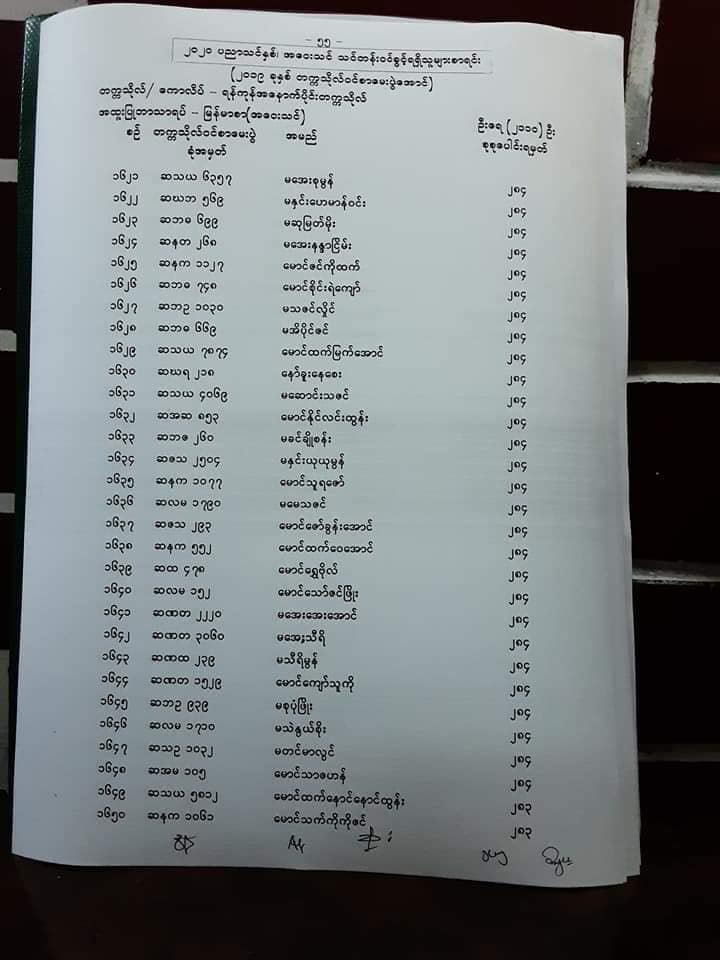 - ၅၅ -
၂၀၂၀ ပညာသင်နှစ်၊ အဝေးသင် သင်တန်းဝင်ခွင့်ရရှိသူများစာရင်း
(၂၀၁၉ ခုနှစ် တက္ကသိုလ်ဝင်စာမေးပွဲအောင်)
တက္ကသိုလ်/ ကောလိပ် - ရန်ကုန်အနောက်ပိုင်းတက္ကသိုလ်
အထူးပြုဘာသာရပ် - မြန်မာစာ(အဝေးသင်) ဦးရေ (၂၁၁၀) ဦး
စဉ် တက္ကသိုလ်ဝင်စာမေးပွဲ အမည် စုစုပေါင်းရမှတ်
ခုံအမှတ်
၁၆၂၁ ဆသယ ၆၃၅၇ မအေးစုမွန် ၂၈၄
၁၆၂၂ ဆဃဘ ၅၆၉ မနှင်းဟေမာန်ဝင်း ၂၈၄
၁၆၂၃ ဆဘဓ ၆၉၉ မဆုမြတ်မိုး ၂၈၄
၁၆၂၄ ဆနတ ၂၆၈ မအေးနန္ဒာငြိမ်း ၂၈၄
၁၆၂၅ ဆနက ၁၁၂၇ မောင်ဇင်ကိုထက် ၂၈၄
၁၆၂၆ ဆဘဓ ၇၄၈ မောင်စိုင်းရဲကျော် ၂၈၄
၁၆၂၇ ဆဘဥ ၁၀၃၀ မသဇင်လှိုင် ၂၈၄
၁၆၂၈ ဆဘဓ ၆၆၉ မအိပိုင်ဇင် ၂၈၄
၁၆၂၉ ဆသယ ၇၈၇၄ မောင်ထက်မြက်အောင် ၂၈၄
၁၆၃၀ ဆဃရ ၂၁၈ နော်ခူးနေစေး ၂၈၄
၁၆၃၁ ဆသယ ၄၀၆၉ မဆောင်းသဇင် ၂၈၄
၁၆၃၂ ဆအဆ ၈၅၃ မောင်နိုင်လင်းထွန်း ၂၈၄
၁၆၃၃ ဆဘဇ ၂၆၀ မခင်ချိုစန်း ၂၈၄
၁၆၃၄ ဆဇသ ၂၅၀၄ မနှင်းယုယုမွန် ၂၈၄
၁၆၃၅ ဆနက ၁၀၇၇ မောင်သူရဇော် ၂၈၄
၁၆၃၆ ဆလမ ၁၇၉၀ မမေသဇင် ၂၈၄
၁၆၃၇ ဆဇသ ၂၉၃ မောင်ဇော်ခွန်းအောင် ၂၈၄
၁၆၃၈ ဆနက ၅၅၂ မောင်ထက်ဝေအောင် ၂၈၄
၁၆၃၉ ဆထ ၄၇၈ မောင်ရွှေဗိုလ် ၂၈၄
၁၆၄၀ ဆလမ ၁၅၂ မောင်သော်ဇင်ဖြိုး ၂၈၄
၁၆၄၁ ဆဏတ ၂၂၂၀ မအေးအေးအောင် ၂၈၄
၁၆၄၂ ဆဏတ ၃၀၆၀ မအေးသီရိ ၂၈၄
၁၆၄၃ ဆဏထ ၂၃၉ မသီရိမွန် ၂၈၄
၁၆၄၄ ဆဏတ ၁၅၂၉ မောင်ကျော်သူကို ၂၈၄
၁၆၄၅ ဆဘဥ ၉၃၉ မစုပုံဖြိုး ၂၈၄
၁၆၄၆ ဆလမ ၁၇၁၀ မသဲနွယ်စိုး ၂၈၄
၁၆၄၇ ဆသဥ ၁၀၃၂ မတင်မာလွင် ၂၈၄
၁၆၄၈ ဆအမ ၁၀၅ မောင်သာဇဟန် ၂၈၄
၁၆၄၉ ဆသယ ၅၈၁၂ မောင်ထက်နောင်နောင်ထွန်း ၂၈၃
၁၆၅၀ ဆနက ၁၀၆၁ မောင်သက်ကိုကိုဇင် ၂၈၃